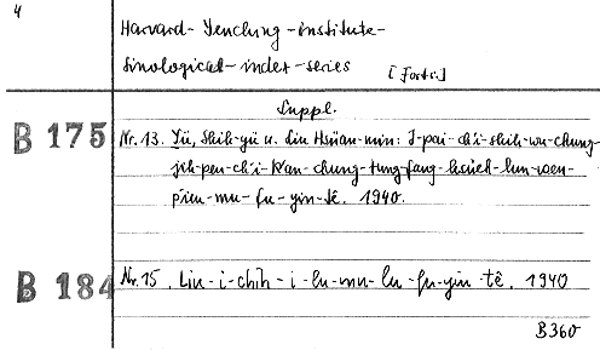 4
Harvard-Yenching-institute-
Sinological-index-series [Forts.]
Suppl.
B 175 Nr. 13. Yü, Shih-yü u. Liu Hsüan-min: I-pai-ch'i-shih-wu-chung-
jih-pen-ch'i-k'an-chung-tung-fang-hsüeh-lun-wen-
p'ien-mu-fu-yin-tê. 1940.
B 184 Nr. 15. Liu-i-chih-i-lu-mu-lu-fu-yin-tê. 1940
B360